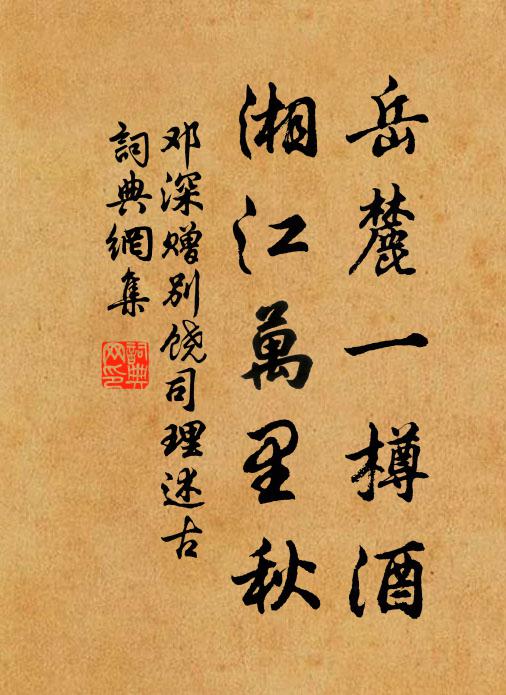 岳麓一樽酒
湘江萬里秋
邓深赠别饶司理述古
詞典網集
詞典
网印